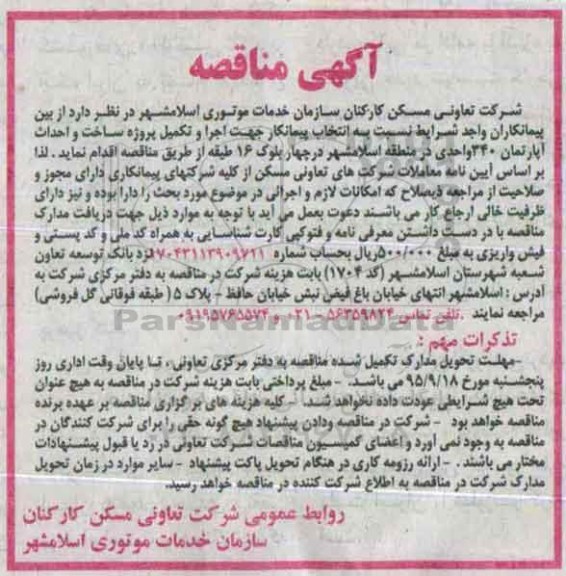 آگهی مناقصه
شرکت تعاونی مسکن کارکنان سازمان خدمات موتوری اسلامشهر در نظر دارد از بین
پیمانکاران واجد شرایط نسبت به انتخاب پیمانکار جهت اجرا و تکمیل پروژه ساخت و احداث
آپارتمان ۳۴۰واحدی در منطقه اسلامشهر درچهار بلوک ۱۶ طبقه از طریق مناقصه اقدام نماید . لذا
بر اساس آیین نامه معاملات شرکت های تعاونی مسکن از کلیه شرکتهای پیمانکاری دارای مجوز و
صلاحیت از مراجعه ذیصلاح که امکانات لازم و اجرائی در موضوع مورد بحث را دارا بوده و نیز دارای
ظرفیت خالی ارجاع کار می باشند دعوت بعمل می آید با توجه به موارد ذیل جهت دریافت مدارک
مناقصه با در دست داشتن معرفی نامه و فتوکپی کارت شناسایی به همراه کد ملی و کد پستی و
فیش واریزی به مبلغ ۵۰۰/۰۰۰ریال بحساب شماره ۱۷۰۴۳۱۱۳۹۰۹۷۱۱نزد بانک توسعه تعاون
شعبه شهرستان اسلامشهر (کد ۱۷۰۴) بابت هزینه شرکت در مناقصه به دفتر مرکزی شرکت به
آدرس : اسلامشهر انتهای خیابان باغ فیض نبش خیابان حافظ - پلاک ۵ ( طبقه فوقانی گل فروشی)
مراجعه نمایند .تلفن تماس ۵۶۳۵۹۸۲۴ - ۰۲۱ و ۰۹۱۹۵۷۶۵۵۷۴
ParsNamadData
تذکرات مهم :
-مهلت تحویل مدارک تکمیل شده مناقصه به دفتر مرکزی تعاونی، تا پایان وقت اداری روز
پنجشنبه مورخ ۹۵/۹/۱۸ می باشد. - مبلغ پرداختی بابت هزینه شرکت در مناقصه به هیچ عنوان
تحت هیچ شرایطی عودت داده نخواهد شد. - کلیه هزینه های برگزاری مناقصه بر عهده برنده
مناقصه خواهد بود - شرکت در مناقصه ودادن پیشنهاد هیچ گونه حقی را برای شرکت کنندگان در
مناقصه به وجود نمی آورد و اعضای کمیسیون مناقصات شرکت تعاونی در رد یا قبول پیشنهادات
مختار می باشند . - ارائه رزومه کاری در هنگام تحویل پاکت پیشنهاد - سایر موارد در زمان تحویل
مدارک شرکت در مناقصه به اطلاع شرکت کننده در مناقصه خواهد رسید.
روابط عمومی شرکت تعاونی مسکن کارکنان
سازمان خدمات موتوری اسلامشهر